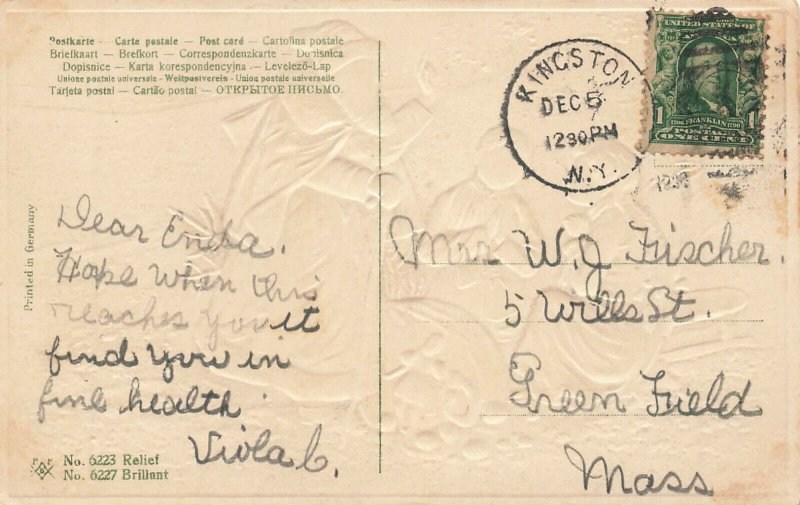 Postkarte - Carte postale - Post card - Cartolina postale
Briefkaart - Brefkort - Correspondenzkarte - Dopisnica
Dopisnice - Karta korespondencyjna - Levelező-Lap
Unione postale universale - Weltpostverein - Union postale universelle
Tarjeta postal - Cartão postal - ОТКРЫТОЕ ПИСЬМО
KINGSTON
DEC 5
1230PM
N.Y.
UNITED STATES OF AMERICA
1 1706 FRANKLIN 1790 1
POSTAGE
ONE CENT
1230
Printed in Germany
Dear Enda.
Hope When this
reaches you it
find you in
fine health
Viola C.
Mrs W. J. Fischer.
5 Wills St.
Green Field
Mass
No. 6223 Relief
No. 6227 Brillant